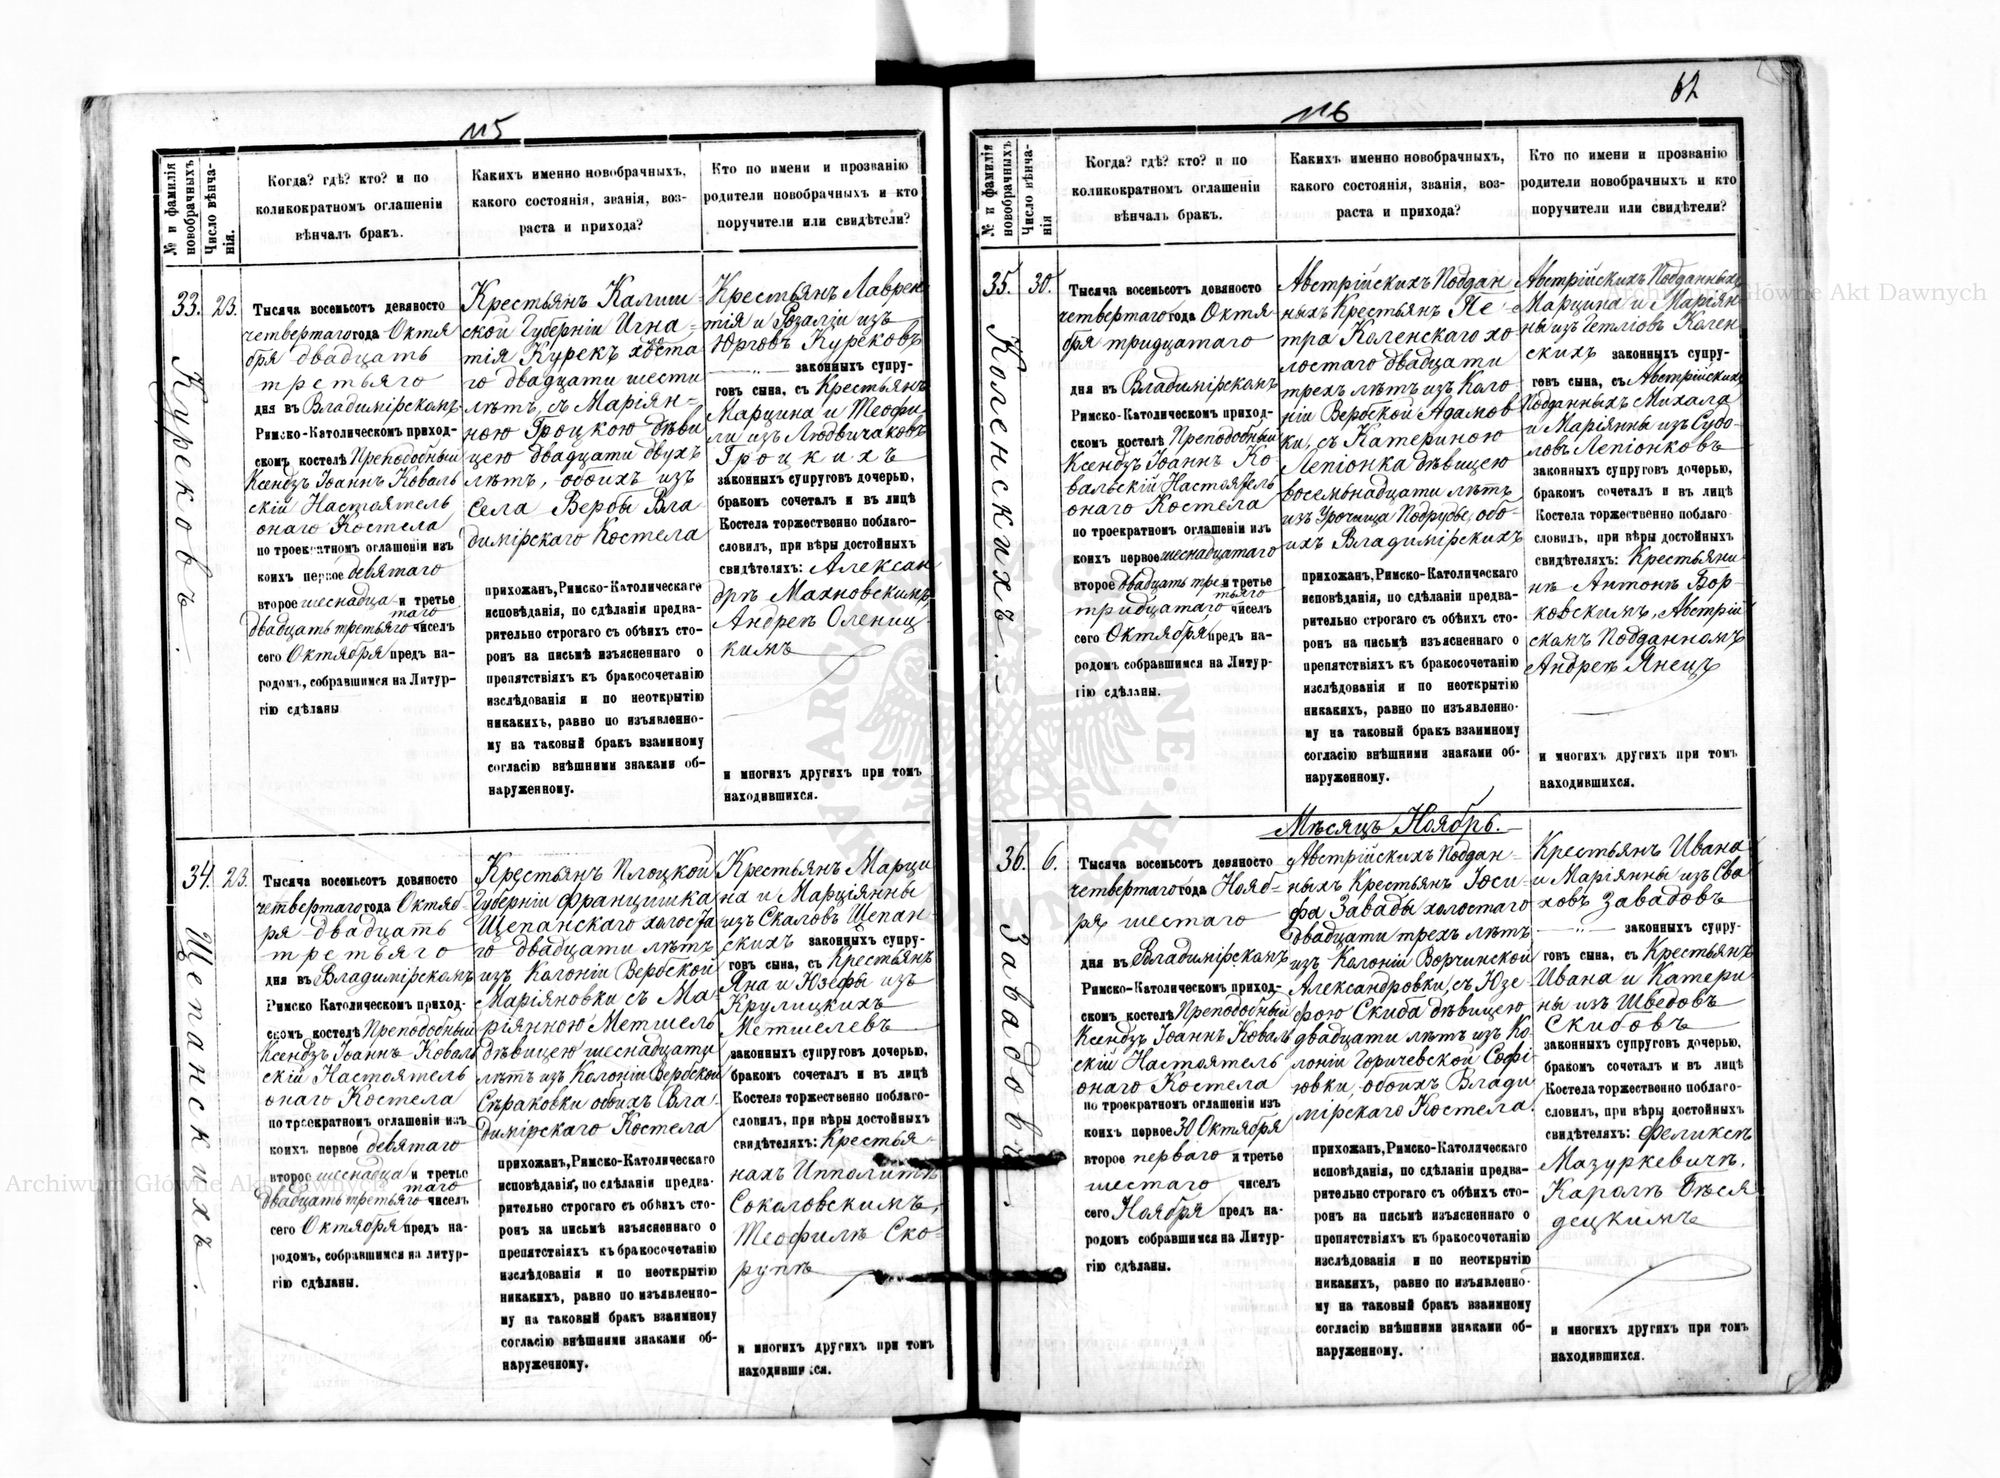 115
№ и фамилія новобрачныхъ
Число вѣнча-
нія.
Когда? гдѣ? кто? и по
коликократномъ оглашеніи
вѣнчалъ бракъ.
Какихъ именно новобрачныхъ,
какого состоянія, званія, воз-
раста и прихода?
Кто по имени и прозванію
родители новобрачныхъ и кто
поручители или свидѣтели?
33.
Курековъ.
23.
Тысяча восемьсотъ девяносто
четвертаго года Октя
бря двадцать
третьяго
дня въ Владимірскомъ
Римско-Католическомъ приход-
скомъ костелѣ Преподобный
Ксендзъ Іоаннъ Коваль
скій Настоятель
онаго Костела
по троекратномъ оглашеніи изъ
коихъ первое девятаго
второе шеснадца и третье
таго
двадцать третьяго чиселъ
сего Октября предъ на-
родомъ, собравшимся на Литур-
гію сдѣланы
Крестьянъ Калиш-
ской Губерніи Игна-
тія Курекъ холоста
го двадцати шести
лѣтъ, съ Маріян-
ною Гроцкою дѣви
цею двадцати двухъ
лѣтъ, обоихъ изъ
села Вербы Вла
димірскаго Костела
прихожан, Римско-Католическаго
исповѣданія, по сдѣланіи предва-
рительно строгаго съ обѣихъ сто-
ронъ на письмѣ изъясненнаго о
препятствіяхъ къ бракосочетанію
изслѣдованія и по неоткрытію
никакихъ, равно по изъявленно-
му на таковый бракъ взаимному
согласію внѣшними знаками об-
наруженному.
Крестьянъ Лаврен
тія и Розаліи изъ
Юрговъ Курековъ
законныхъ супру-
говъ сына, съ Крестьянъ
Марцина и Теофи
ли изъ Людвичаковъ
Гроцкихъ
законныхъ супруговъ дочерью,
бракомъ сочеталъ и въ лицѣ
Костела торжественно поблаго-
словилъ, при вѣры достойныхъ
свидѣтеляхъ: Алексан
дрѣ Махновскимъ
Андреѣ Олениц-
кимъ
и многихъ другихъ при томъ
находившихся.
34.
Щепанскихъ.
23.
Тысяча восемьсотъ девяносто
четвертаго года Октяб-
ря двадцать
третьяго
дня въ Владимірскомъ
Римско Католическомъ приход-
скомъ костелѣ Преподобный
Ксендзъ Іоаннъ Коваль
скій Настоятель
онаго Костела
по троекратномъ оглашеніи изъ
коихъ первое девятаго
второе шеснадца и третье
таго
двадцать третьяго чиселъ
сего Октября предъ на-
родомъ, собравшимся на литур-
гію сдѣланы.
Крестьянъ Плоцкой
Губерніи Францишка
Щепанскаго холоста
го двадцати лѣтъ
изъ Колоніи Вербской
Маріяновки съ Ма-
ріянною Метшель
дѣвицею шеснадцати
лѣтъ изъ Колоніи Вербской
Сѣраковки обоихъ Вла-
димірскаго Костела
прихожан, Римско-Католическаго
исповѣданія, по сдѣланіи предва-
рительно строгаго съ обѣихъ сто-
ронъ на письмѣ изъясненнаго о
препятствіяхъ къ бракосочетанію
изслѣдованія и по неоткрытію
никакихъ, равно по изъявленно-
му на таковый бракъ взаимному
согласію внѣшними знаками об-
наруженному.
Крестьянъ Марци
на и Марціянны
изъ Скаловъ Щепан-
скихъ законныхъ супру-
говъ сына, съ Крестьянъ
Яна и Юзефы изъ
Крулицкихъ
Метшелевъ
законныхъ супруговъ дочерью,
бракомъ сочеталъ и въ лицѣ
Костела торжественно поблаго-
словилъ, при вѣры достойныхъ
свидѣтеляхъ: Крестья-
нахъ Ипполитѣ
Соколовскимъ,
Теофилѣ Ско-
рупѣ
и многихъ другихъ при томъ
находившихся.
62
116
№ и фамилія новобрачныхъ
Число вѣнча-
нія
Когда? гдѣ? кто? и по
коликократномъ оглашеніи
вѣнчалъ бракъ.
Какихъ именно новобрачныхъ,
какого состоянія, званія, воз-
раста и прихода?
Кто по имени и прозванію
родители новобрачныхъ и кто
поручители или свидѣтели?
35.
Коленскихъ.
30.
Тысяча восемьсотъ девяносто
четвертаго года Октя
бря тридцатаго
дня въ Владимірскомъ
Римско-Католическомъ приход-
скомъ костелѣ Преподобный
Ксендзъ Іоаннъ Ко
вальскій Настоятель
онаго Костела
по троекратномъ оглашеніи изъ
коихъ первое шеснадцатаго
второе двадцать тре и третье
тьяго
тридцатаго чиселъ
сего Октября предъ на-
родомъ собравшимся на Литур-
гію сдѣланы.
Австрійскихъ Поддан
ныхъ Крестьянъ Пе-
тра Коленскаго хо
лостаго двадцати
трехъ лѣтъ изъ Коло
ніи Вербской Адамов
ки, съ Катериною
Лепіонка дѣвицею
восемьнадцати лѣтъ
изъ Урочища Подрубы, обо-
ихъ Владимірскихъ
прихожан, Римско-Католическаго
исповѣданія, по сдѣланіи предва-
рительно строгаго съ обѣихъ сто-
ронъ на письмѣ изъясненнаго о
препятствіяхъ къ бракосочетанію
изслѣдованія и по неоткрытію
никакихъ, равно по изъявленно-
му на таковый бракъ взаимному
согласію внѣшними знаками об-
наруженному.
Австрійскихъ Подданныхъ
Марцина и Маріян-
ны изъ Гетліовъ Колен
скихъ законныхъ супру-
говъ сына, съ Австрійскихъ
Подданныхъ Михала
и Маріянны изъ Судо-
ловъ Лепіонковъ
законныхъ супруговъ дочерью,
бракомъ сочеталъ и въ лицѣ
Костела торжественно поблаго-
словилъ, при вѣры достойныхъ
свидѣтеляхъ: Крестьяни
нѣ Антонѣ Бор-
ковскимъ, Австрій
скомъ Подданномъ
Андреѣ Янецъ
и многихъ другихъ при томъ
находившихся.
Мѣсяцъ Ноябрь.
36.
Завадовъ.
6.
Тысяча восемьсотъ девяносто
четвертаго года Нояб-
ря шестаго
дня въ Владимірскомъ
Римско-Католическомъ приход-
скомъ костелѣ Преподобный
Ксендзъ Іоаннъ Коваль
скій Настоятель
онаго Костела
по троекратномъ оглашеніи изъ
коихъ первое 30 Октября
второе перваго и третье
шестаго чиселъ
сего Ноября предъ на-
родомъ собравшимся на Литур-
гію сдѣланы.
Австрійскихъ Поддан-
ныхъ Крестьянъ Іоси-
фа Завады холостаго
двадцати трехъ лѣтъ
изъ Колоніи Ворчинской
Александровки, съ Юзе
фою Скиба дѣвицею
двадцати лѣтъ изъ Ко-
лоніи Горичевской Софі-
ювки, обоихъ Влади
мірскаго Костела.
прихожан, Римско-Католическаго
исповѣданія, по сдѣланіи предва-
рительно строгаго съ обѣихъ сто-
ронъ на письмѣ изъясненнаго о
препятствіяхъ къ бракосочетанію
изслѣдованія и по неоткрытію
никакихъ, равно по изъявленно-
му на таковый бракъ взаимному
согласію внѣшними знаками об-
наруженному.
Крестьянъ Ивана
и Маріянны изъ Сва
ховъ Завадовъ
законныхъ супру-
говъ сына, съ Крестьянъ
Ивана и Катери
ны изъ Шведовъ
Скибовъ
законныхъ супруговъ дочерью,
бракомъ сочеталъ и въ лицѣ
Костела торжественно поблаго-
словилъ, при вѣры достойныхъ
свидѣтеляхъ: Феликсѣ
Мазуркевичѣ,
Каролѣ Бѣся
децкимъ
и многихъ другихъ при томъ
находившихся.
Archiwum Główne Akt Dawnych
Archiwum Główne Akt Dawnych